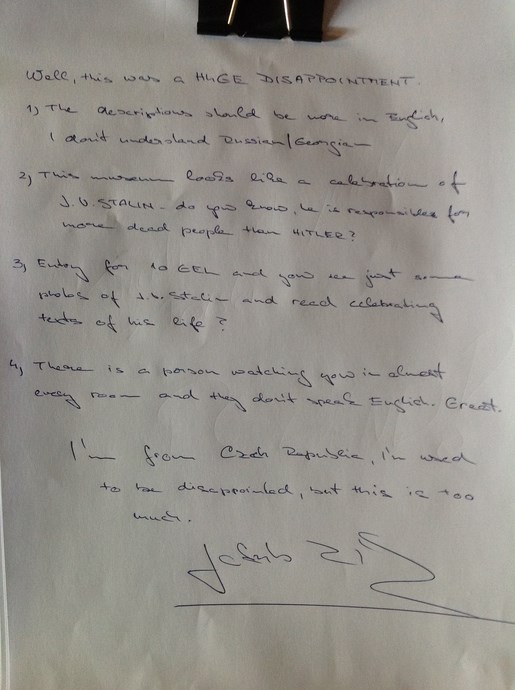 Well, this was a HUGE DISAPPOINTMENT.
1) The descriptions should be more in English,
I don't understand Russian/Georgian
2) This museum looks like a celebration of
J.V. STALIN - do you know, he is responsible for
more dead people than HITLER?
3) Entry for 10 GEL and you see just some
photos of J.V. Stalin and read celebrating
texts of his life?
4) There is a person watching you in almost
every room and they don't speak English. Great.
I'm from Czech Republic, I'm used
to be disappointed, but this is too
much.
Jakub